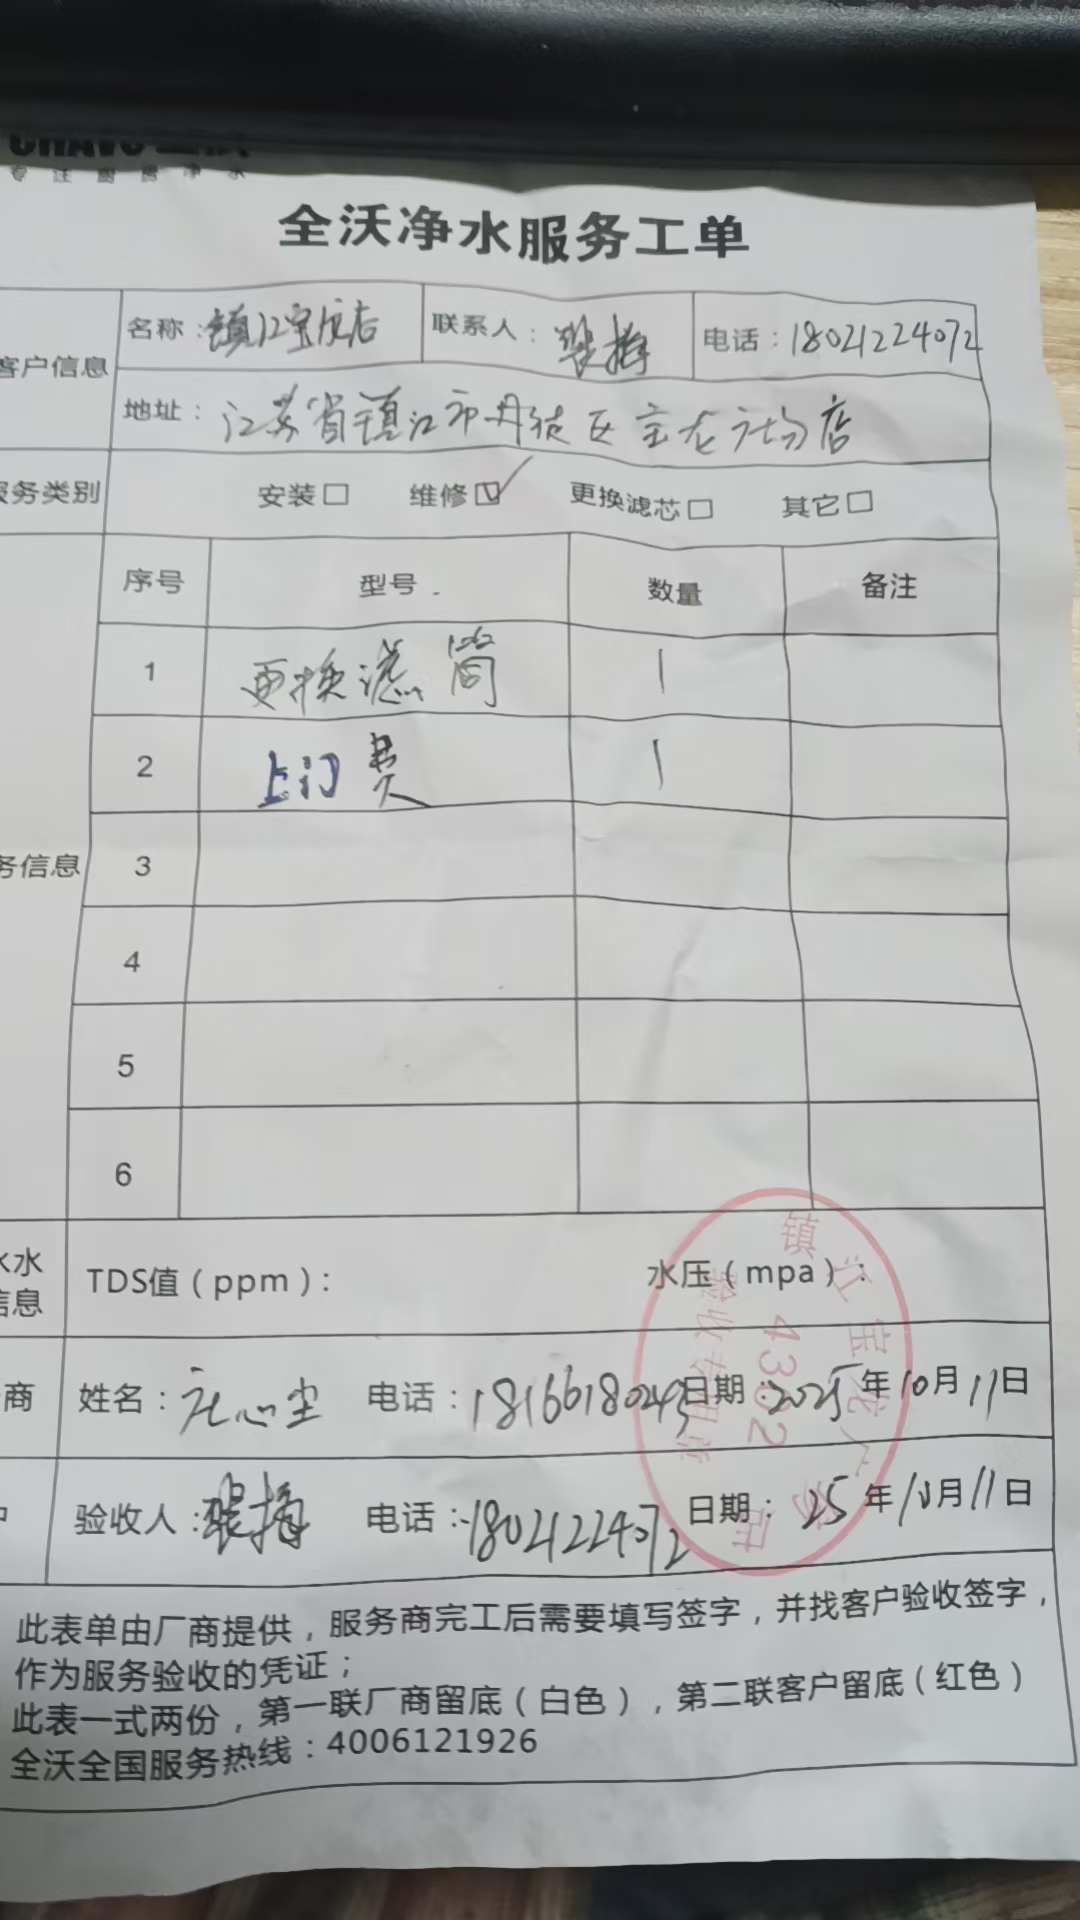 专注厨房净水
全沃净水服务工单
客户信息
名称：镇江宝龙店 联系人： 电话：18021224072
地址：江苏省镇江市丹徒区宝龙广场店
服务类别 安装□ 维修☑ 更换滤芯□ 其它□
序号 型号 数量 备注
1 更换滤筒 1
2 上门费 1
务信息
3
4
5
6
水水
信息
TDS值（ppm）： 水压（mpa）：
商 姓名： 电话：18166180245 日期：2025年10月11日
验收人： 电话：18021224072 日期：25年10月11日
镇江宝龙广场店
4302
验收专用章
此表单由厂商提供，服务商完工后需要填写签字，并找客户验收签字，
作为服务验收的凭证；
此表一式两份，第一联厂商留底（白色），第二联客户留底（红色）
全沃全国服务热线：4006121926